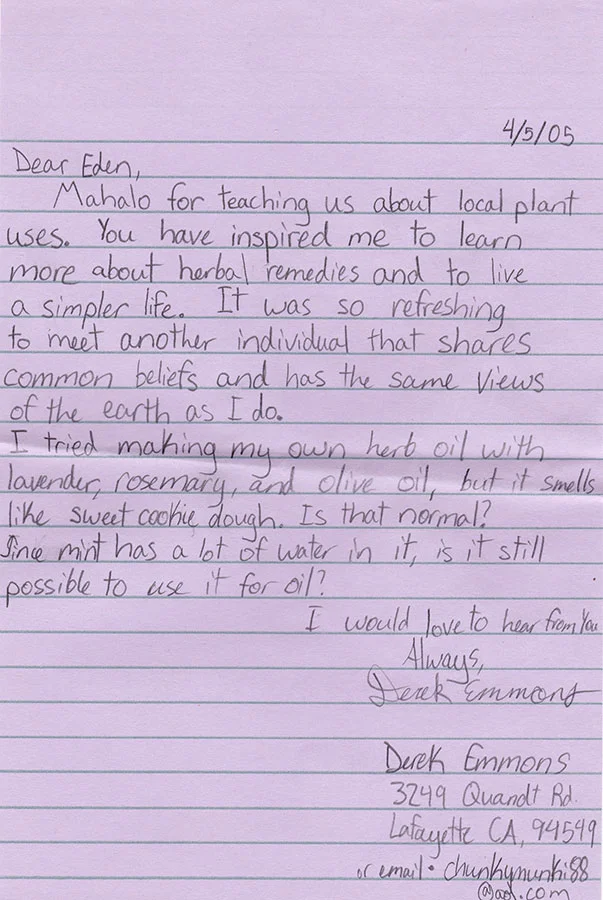 4/5/05
Dear Eden,
Mahalo for teaching us about local plant
uses. You have inspired me to learn
more about herbal remedies and to live
a simpler life. It was so refreshing
to meet another individual that shares
common beliefs and has the same views
of the earth as I do.
I tried making my own herb oil with
lavender, rosemary, and olive oil, but it smells
like sweet cookie dough. Is that normal?
Sine mint has a lot of water in it, is it still
possible to use it for oil?
I would love to hear from You
Always,
Derek Emmons
Derek Emmons
3249 Quandt Rd.
Lafayette CA, 94549
or email · chunkymunki88
@aol.com